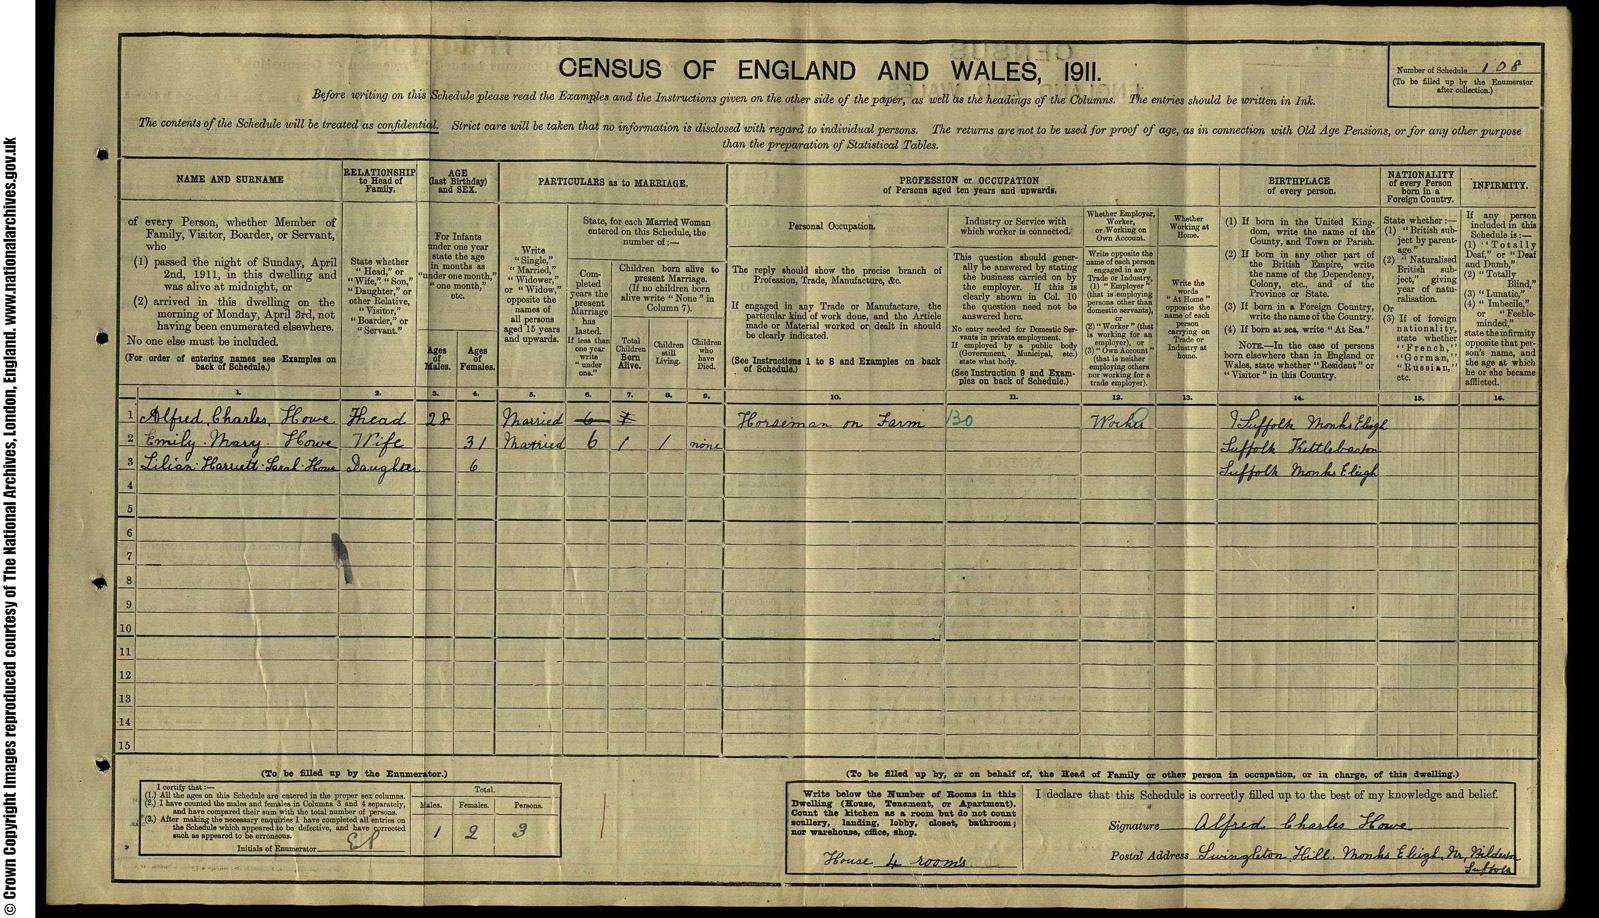 CENSUS OF ENGLAND AND WALES, 1911.
Number of Schedule 108
(To be filled up by the Enumerator
after collection.)
Before writing on this Schedule please read the Examples and the Instructions given on the other side of the paper, as well as the headings of the Columns. The entries should be written in Ink.
The contents of the Schedule will be treated as confidential. Strict care will be taken that no information is disclosed with regard to individual persons. The returns are not to be used for proof of age, as in connection with Old Age Pensions, or for any other purpose
than the preparation of Statistical Tables.
NAME AND SURNAME
of every Person, whether Member of
Family, Visitor, Boarder, or Servant,
who
(1) passed the night of Sunday, April
2nd, 1911, in this dwelling and
was alive at midnight, or
(2) arrived in this dwelling on the
morning of Monday, April 3rd, not
having been enumerated elsewhere.
No one else must be included.
(For order of entering names see Examples on
back of Schedule.)
RELATIONSHIP
to Head of
Family.
State whether
"Head," or
"Wife," "Son,"
"Daughter," or
other Relative,
"Visitor,"
"Boarder," or
"Servant."
AGE
(last Birthday)
and SEX.
For Infants
under one year
state the age
in months as
"under one month,"
"one month,"
etc.
Ages
of
Males.
Ages
of
Females.
PARTICULARS as to MARRIAGE.
Write
"Single,"
"Married,"
"Widower,"
or "Widow,"
opposite the
names of
all persons
aged 15 years
and upwards.
State, for each Married Woman
entered on this Schedule, the
number of:—
Com-
pleted
years the
present
Marriage
has
lasted.
If less than
one year
write
"under
one."
Children born alive to
present Marriage.
(If no children born
alive write "None" in
Column 7).
Total
Children
Born
Alive.
Children
still
Living.
Children
who
have
Died.
PROFESSION or OCCUPATION
of Persons aged ten years and upwards.
Personal Occupation.
The reply should show the precise branch of
Profession, Trade, Manufacture, &c.
If engaged in any Trade or Manufacture, the
particular kind of work done, and the Article
made or Material worked or dealt in should
be clearly indicated.
(See Instructions 1 to 8 and Examples on back
of Schedule.)
Industry or Service with
which worker is connected.
This question should gener-
ally be answered by stating
the business carried on by
the employer. If this is
clearly shown in Col. 10
the question need not be
answered here.
No entry needed for Domestic Ser-
vants in private employment.
If employed by a public body
(Government, Municipal, etc.)
state what body.
(See Instruction 9 and Exam-
ples on back of Schedule.)
Whether Employer,
Worker,
or Working on
Own Account.
Write opposite the
name of each person
engaged in any
Trade or Industry,
(1) "Employer"
(that is employing
persons other than
domestic servants),
or
(2) "Worker" (that
is working for an
employer), or
(3) "Own Account"
(that is neither
employing others
nor working for a
trade employer).
Whether
Working at
Home.
Write the
words
"At Home"
opposite the
name of each
person
carrying on
Trade or
Industry at
home.
BIRTHPLACE
of every person.
(1) If born in the United King-
dom, write the name of the
County, and Town or Parish.
(2) If born in any other part of
the British Empire, write
the name of the Dependency,
Colony, etc., and of the
Province or State.
(3) If born in a Foreign Country,
write the name of the Country.
(4) If born at sea, write "At Sea."
NOTE.—In the case of persons
born elsewhere than in England or
Wales, state whether "Resident" or
"Visitor" in this Country.
NATIONALITY
of every Person
born in a
Foreign Country.
State whether:—
(1) "British sub-
ject by parent-
age."
(2) "Naturalised
British sub-
ject," giving
year of natu-
ralisation.
Or
(3) If of foreign
nationality,
state whether
"French,"
"German,"
"Russian,"
etc.
INFIRMITY.
If any person
included in this
Schedule is:—
(1) "Totally
Deaf," or "Deaf
and Dumb,"
(2) "Totally
Blind,"
(3) "Lunatic,"
(4) "Imbecile,"
or "Feeble-
minded,"
state the infirmity
opposite that per-
son's name, and
the age at which
he or she became
afflicted.
1. 2. 3. 4. 5. 6. 7. 8. 9. 10. 11. 12. 13. 14. 15. 16.
1 Alfred Charles Howe Head 28 Married 6 1 Horseman on Farm 130 Worker Suffolk Monks Eleigh
2 Emily Mary Howe Wife 31 Married 6 1 1 none Suffolk Kettlebaston
3 Lilian Harriett Sarah Howe Daughter 6 Suffolk Monks Eleigh
4
5
6
7
8
9
10
11
12
13
14
15
(To be filled up by the Enumerator.)
I certify that:—
(1.) All the ages on this Schedule are entered in the proper sex columns.
(2.) I have counted the males and females in Columns 3 and 4 separately,
and have compared their sum with the total number of persons.
(3.) After making the necessary enquiries I have completed all entries on
the Schedule which appeared to be defective, and have corrected
such as appeared to be erroneous.
Initials of Enumerator EP
Total.
Males. Females. Persons.
1 2 3
(To be filled up by, or on behalf of, the Head of Family or other person in occupation, or in charge, of this dwelling.)
Write below the Number of Rooms in this
Dwelling (House, Tenement, or Apartment).
Count the kitchen as a room but do not count
scullery, landing, lobby, closet, bathroom;
nor warehouse, office, shop.
House 4 rooms
I declare that this Schedule is correctly filled up to the best of my knowledge and belief.
Signature Alfred Charles Howe
Postal Address Swingleton Hill. Monks Eleigh. Nr, Bildeston
Suffolk
© Crown Copyright Images reproduced courtesy of The National Archives, London, England. www.nationalarchives.gov.uk